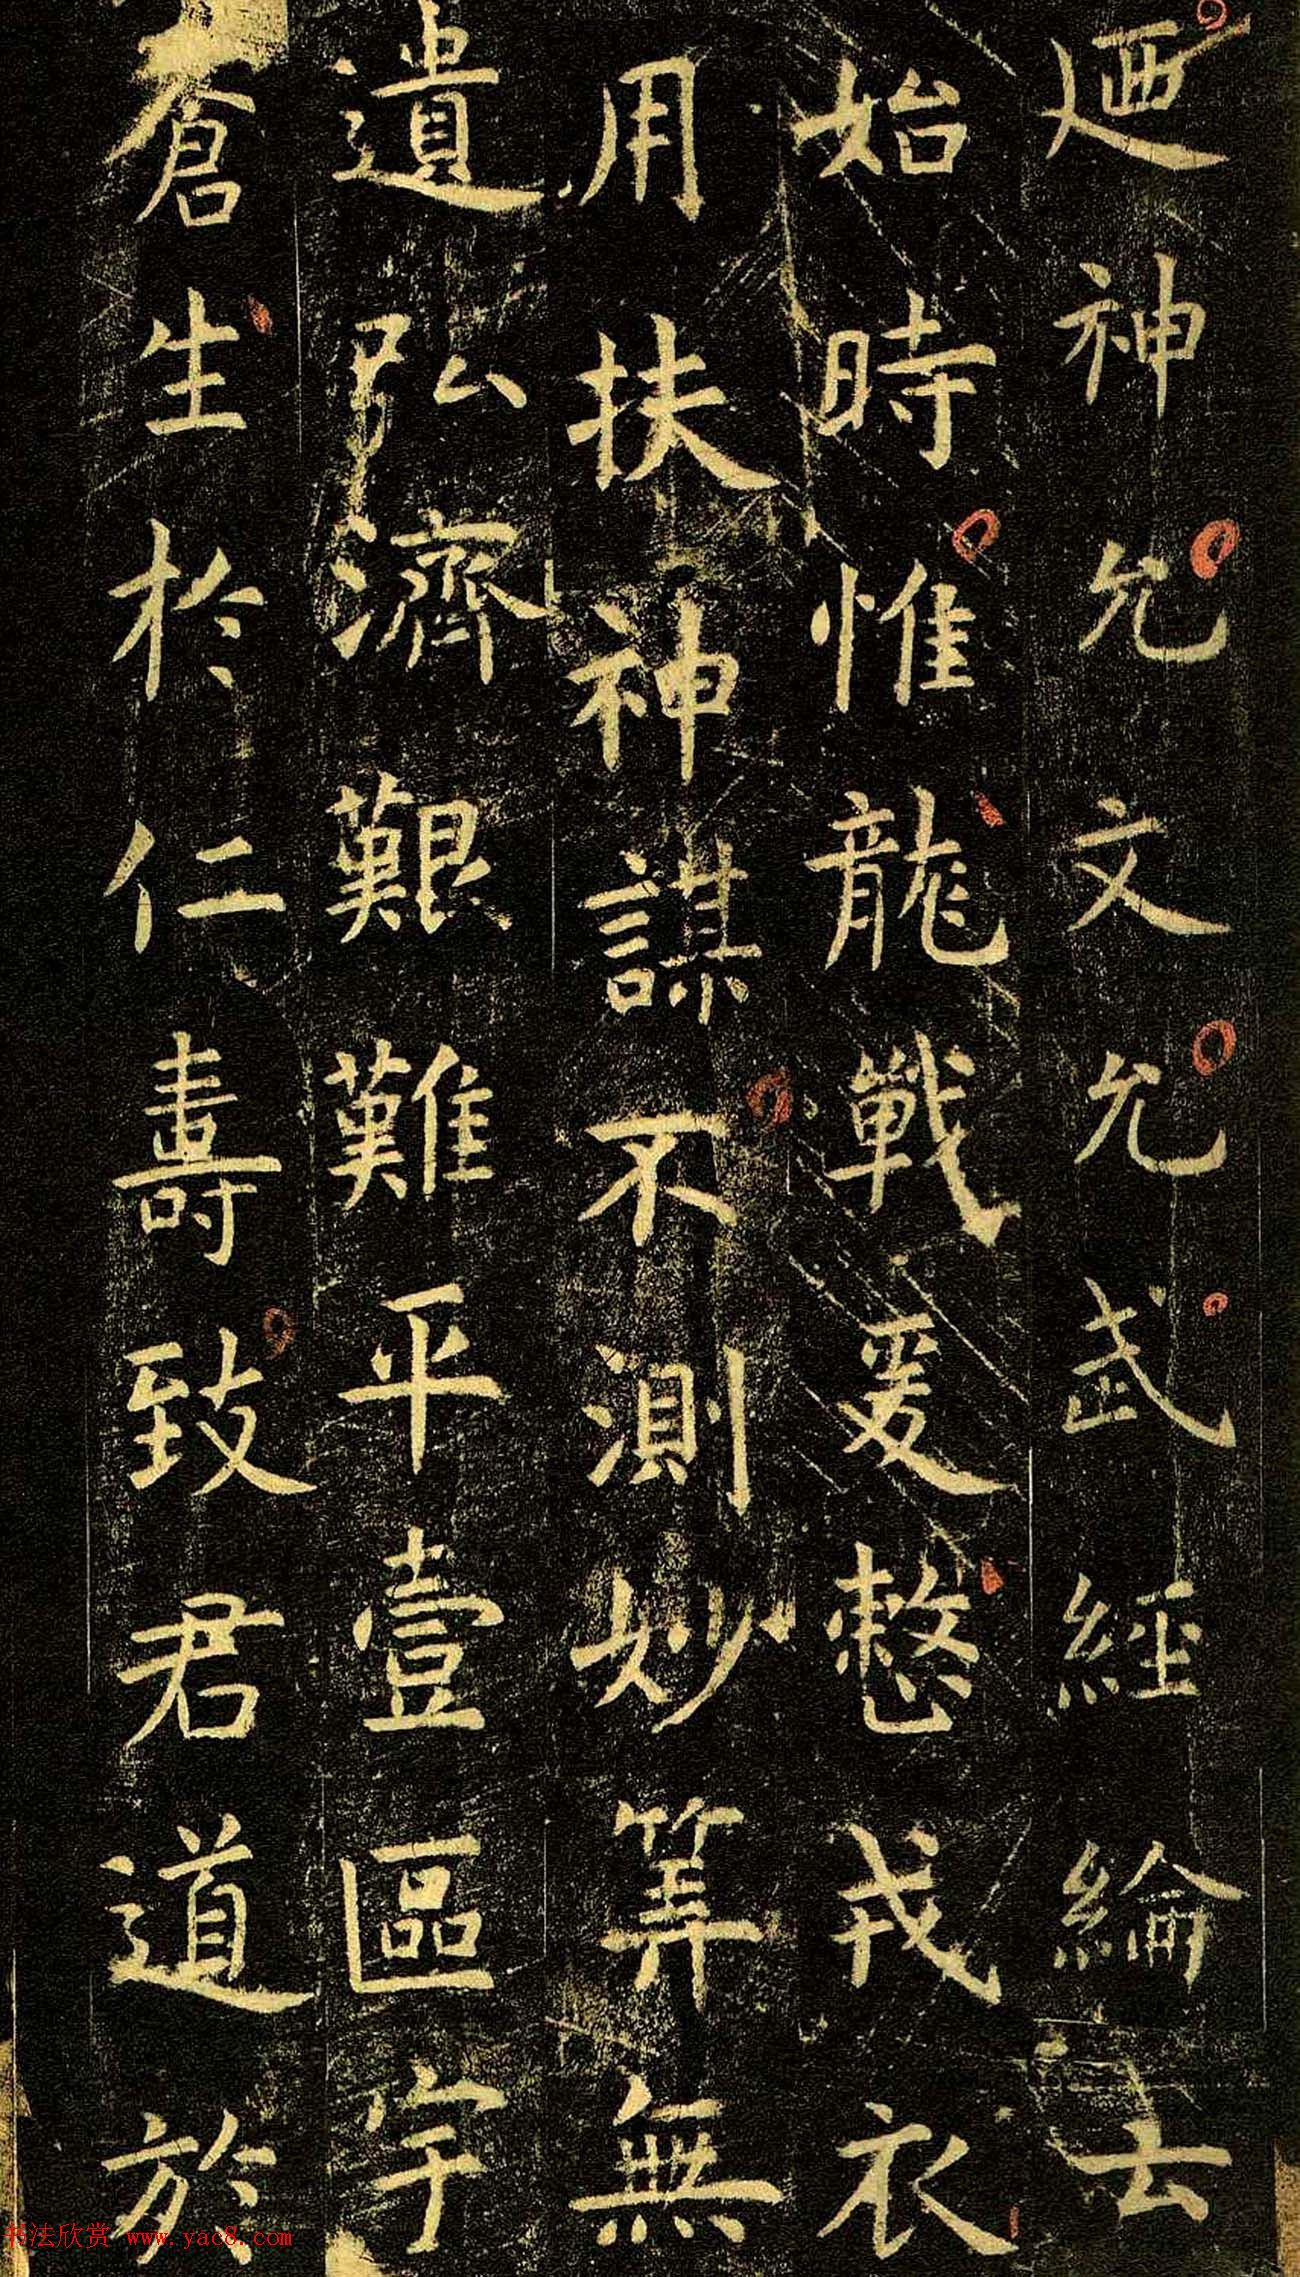 廼神允文允武經綸云
始時惟龍戰爰整戎衣
用扶神謀不測妙筭無
遺弘濟艱難平壹區宇
蒼生於仁壽致君道於
书法欣赏 www.yac8.com